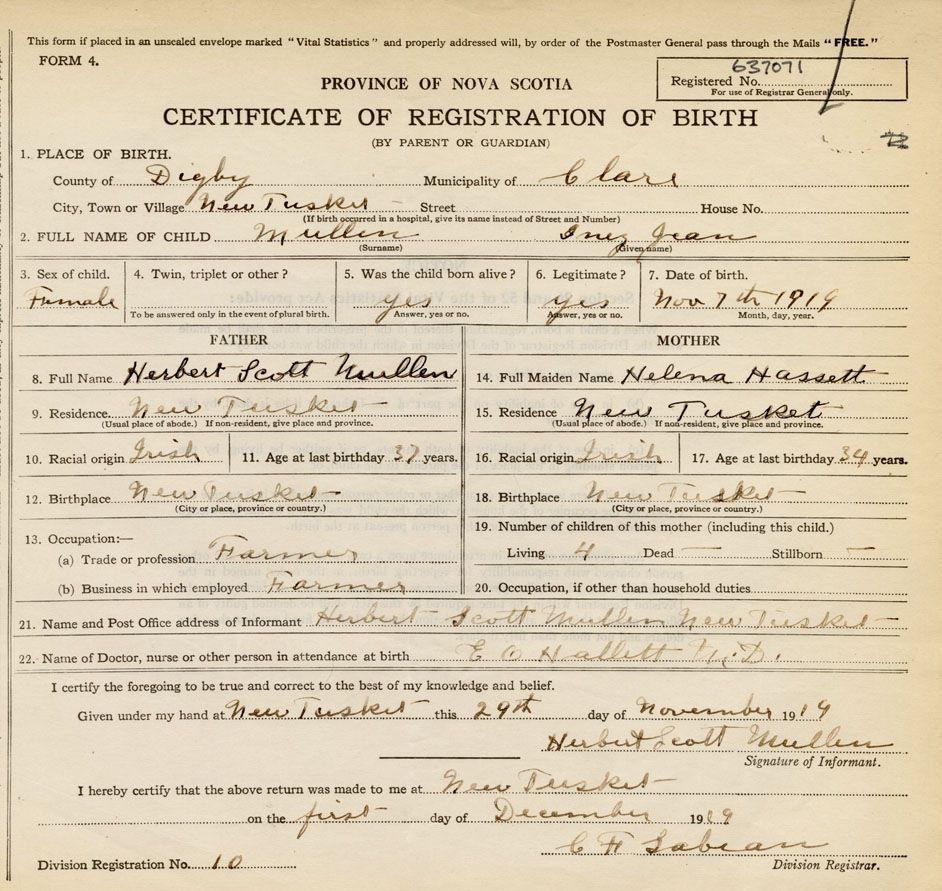 This form if placed in an unsealed envelope marked "Vital Statistics" and properly addressed will, by order of the Postmaster General pass through the Mails "FREE."
FORM 4.
637071
Registered No.
For use of Registrar General only.
PROVINCE OF NOVA SCOTIA
CERTIFICATE OF REGISTRATION OF BIRTH
(BY PARENT OR GUARDIAN)
1. PLACE OF BIRTH.
County of Digby Municipality of Clare
City, Town or Village New Tusket — Street House No.
(If birth occurred in a hospital, give its name instead of Street and Number)
2. FULL NAME OF CHILD Mullen Inez Jean
(Surname) (Given name)
3. Sex of child. 4. Twin, triplet or other? 5. Was the child born alive? 6. Legitimate? 7. Date of birth.
Female yes yes Nov 7th 1919
To be answered only in the event of plural birth. Answer, yes or no. Answer, yes or no. Month, day, year.
FATHER MOTHER
8. Full Name Herbert Scott Mullen 14. Full Maiden Name Helena Hassett
9. Residence New Tusket 15. Residence New Tusket
(Usual place of abode.) If non-resident, give place and province. (Usual place of abode.) If non-resident, give place and province.
10. Racial origin Irish 11. Age at last birthday 37 years. 16. Racial origin Irish 17. Age at last birthday 34 years.
12. Birthplace New Tusket 18. Birthplace New Tusket
(City or place, province or country.) (City or place, province or country.)
13. Occupation:— 19. Number of children of this mother (including this child.)
(a) Trade or profession Farmer Living 4 Dead — Stillborn —
(b) Business in which employed Farmer 20. Occupation, if other than household duties
21. Name and Post Office address of Informant Herbert Scott Mullen New Tusket
22. Name of Doctor, nurse or other person in attendance at birth E O Hallett M.D.
I certify the foregoing to be true and correct to the best of my knowledge and belief.
Given under my hand at New Tusket this 29th day of November 1919
Herbert Scott Mullen
Signature of Informant.
I hereby certify that the above return was made to me at New Tusket
on the first day of December 1919
C F Sabean
Division Registration No. 10 Division Registrar.